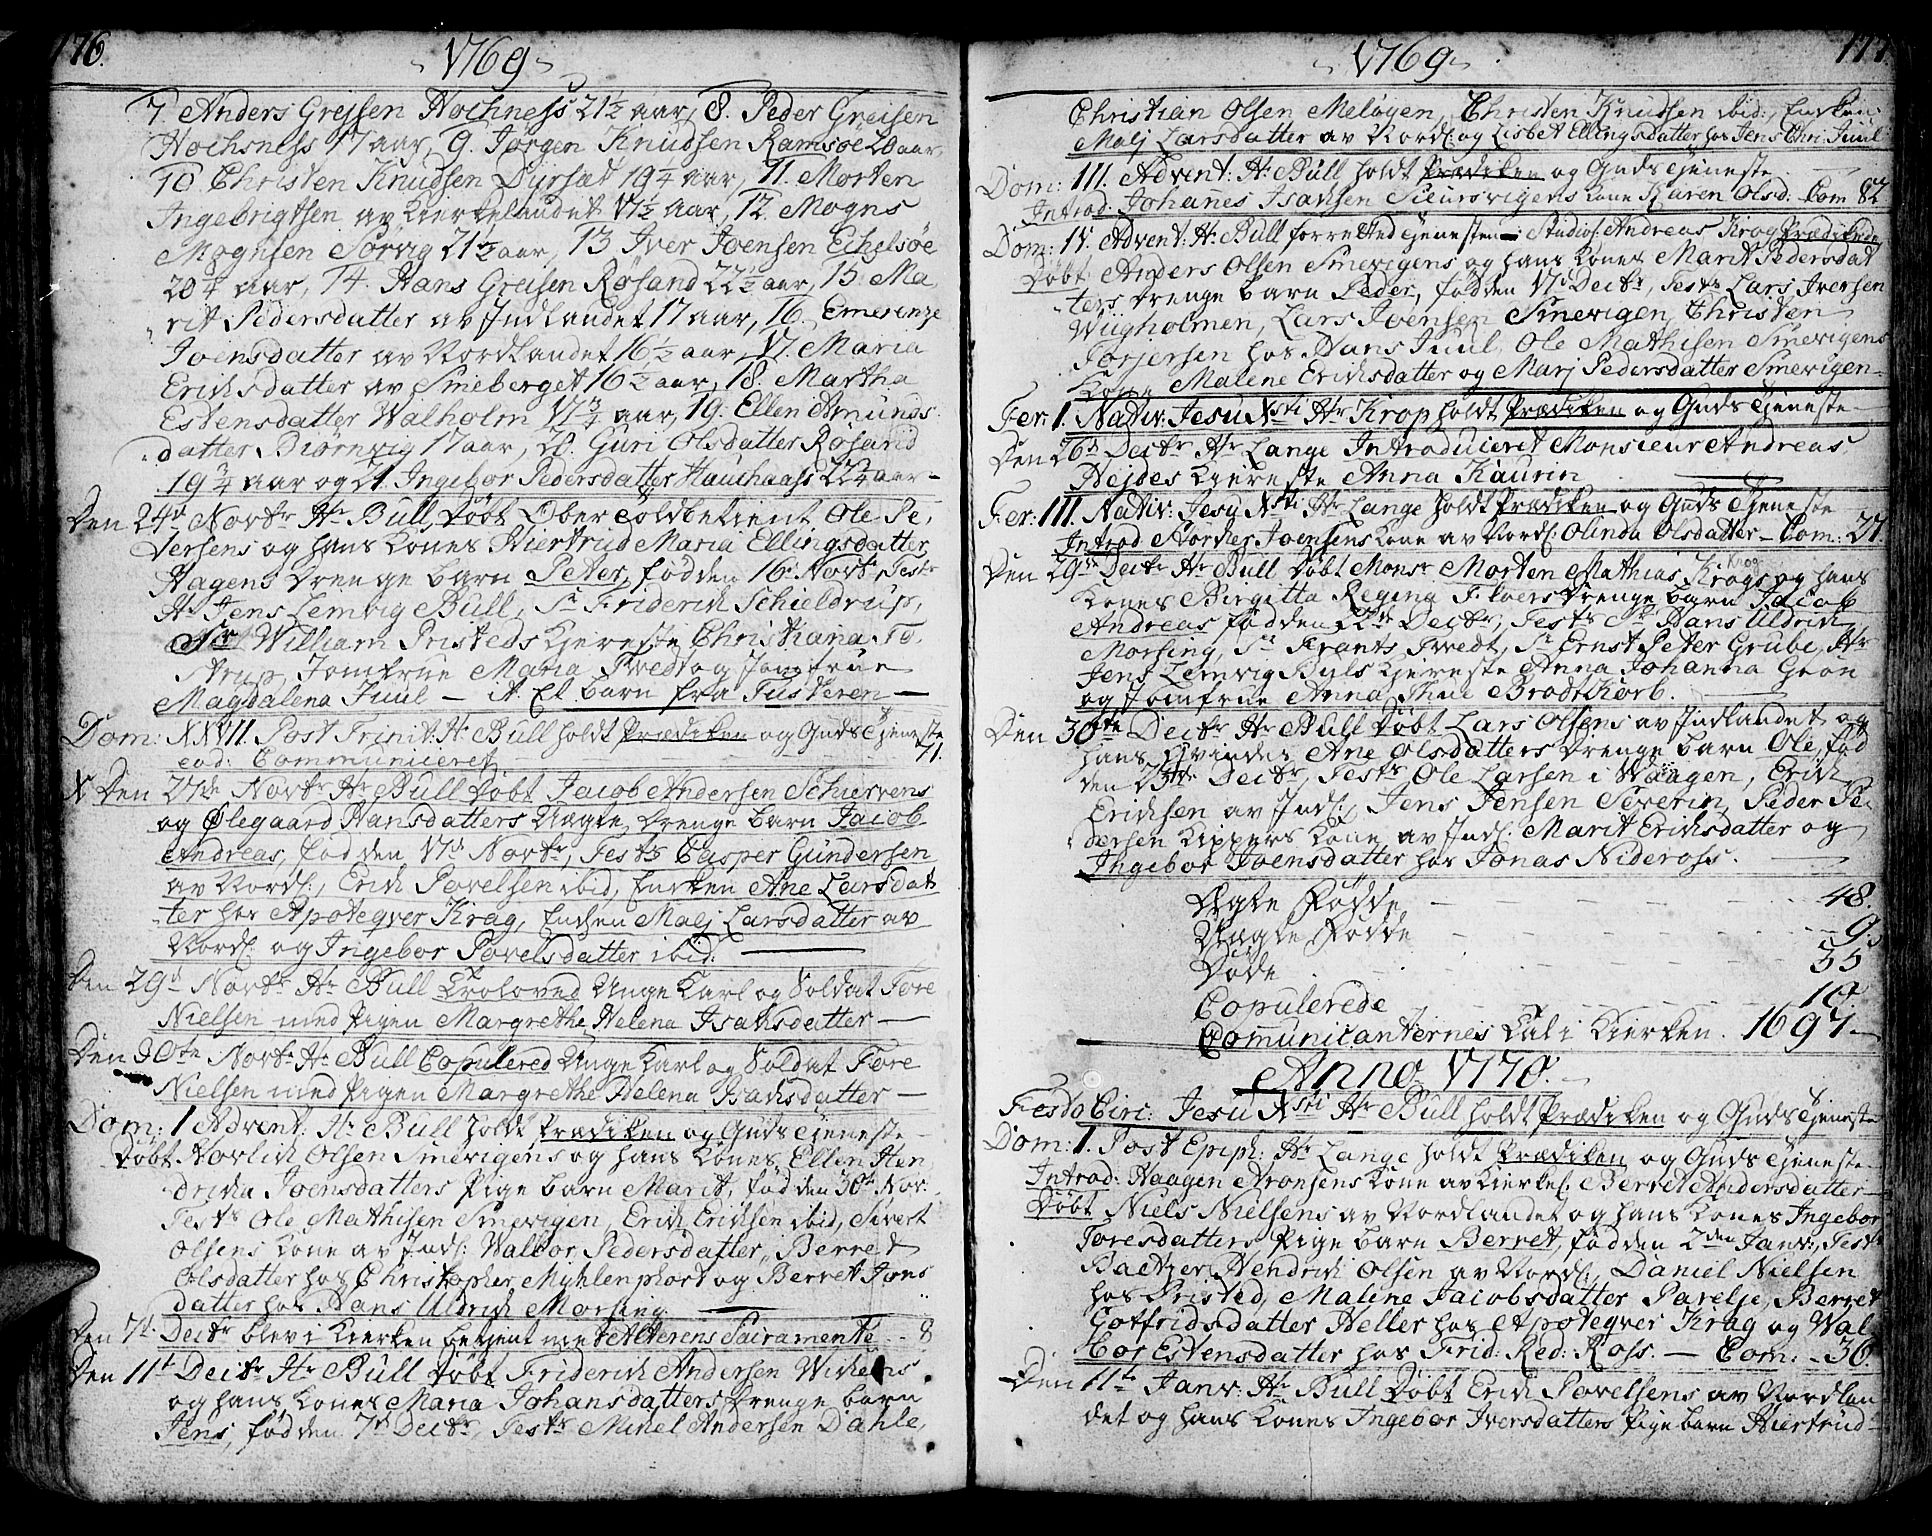 176.
1769
7. Anders Greisen Hochness 21 1/2 aar, 8. Peder Greisen
Hochsness 17 aar, 9. Jørgen Knudsen Ramsøe 20 aar,
10 Christen Knudsen Dyrsæt 19 1/4 aar, 11. Morten
Ingebrigtsen av Kierkelandet 17 1/2 aar, 12. Mogns
Mognsen Sørvig 21 1/2 aar, 13 Iver Joensen Echelsøe
20 1/4 aar, 14. Hans Greisen Røsand 22 1/2 aar, 15. Ma
rit Pedersdatter av Indlandet 17 aar, 16. Emerenze
Joensdatter av Nordlandet 16 1/2 aar, 17. Maria
Erichsdatter av Smeberget 16 1/2 aar, 18. Martha
Estensdatter Walholm 17 3/4 aar, 19. Ellen Amunds
datter Biørnvig 17 aar, 20. Guri Olsdatter Røsand
19 3/4 aar og 21. Ingebor Pedersdatter Hauchaass 22 1/4 aar
Den 24d Novbr Hr Bull Døbt Ober Toldbetient Ole Pe
dersens og hans Kones Hiertrud Maria Ellingsdatter
Hagens Drenge barn Peter, fød den 16d Novbr, Testr
Hr Jens Lemvig Bull, Sr Friderich Schieldrup,
Sr William Pristeds Kiereste Christiana To
strup, Jomfrue Maria Tvedt og Jomfrue
Magdalena Juul — A. Et barn fra Tusteren —
Dom: XXVII. Post Trinit: Hr Bull holdt Prædiken og Guds Tjeneste
eod: Communiceret 71.
X Den 27de Novbr Hr Bull Døbt Jacob Andersen Schiervens
og Ølegaard Hansdatters Uægte Drenge barn Jacob
Andreas, fød den 17d Novbr, Testr Casper Gundersen
av Nordl:, Erich Povelsen ibid, Enken Ane Larsdat
ter hos Apoteqver Krag, Enchen Malj Larsdatter av
Nordl: og Ingebor Povelsdatter ibid:
Den 29d Novbr Hr Bull Troloved Unge Karl og Soldat Tore
Nielsen med Pigen Margrethe Helena Isachsdatter —
Den 30te Novbr Hr Bull Copulered Unge Karl og Soldat Tore
Nielsen med Pigen Margrethe Helena Isachsdatter —
Dom: 1 Advent: Hr Bull holdt Prædiken og Guds Tjeneste
Døbt Olsen Smevigens og hans Kones Ellen Hen
dricha Joensdatters Pige barn Marit, fød den 30d Nov:
Testr Ole Mathisen Smevigen, Erich Erichsen ibid, Sivert
Olsens Kone av Indl: Walbor Pedersdatter, Berret
Olsdatter hos Christopher Myhlenphort og Berret Jons
datter hos Hans Uldrich Morsing
Den 7d. Decbr blev i Kierken betient med Alterens Sacramente 8
Den 11t Decbr Hr Bull Døbt Friderich Andersen Wichens
og hans Kones Maria Johansdatters Drenge barn
Jens, fød den 7d Decbr, Testr Michel Andersen Dahle,
177
1769
Christian Olsen Meløgen, Christen Knudsen ibid: Enken
Malj Larsdatter av Nordl: og Lisbet Ellingsdatter hos Jens Chr: Juul
Dom: III. Advent: Hr Bull holdt Prædiken og Guds Tjeneste
Introd: Johanes Isachsen Sieursvigens Kone Karen Olsd: Com 82
Dom: IV. Advent: Hr Bull forretted Tjenesten Studios: Andreas Krog Prædikede
Døbt Anders Olsen Smevigens og hans Kones Marit Pedersdat
ters Drenge barn Peder, fød den 17d Decbr, Testr Lars Iversen
Wiigholmen, Lars Joensen Smevigen, Christen
Torjersen hos Hans Juul, Ole Mathisen Smevigens
Kone Malene Erichsdatter og Marj Pedersdatter Smevigen
Fer: 1. Nativ: Jesu Xsti Hr Krop holdt Prædiken og Guds Tjeneste
Den 26d Decbr Hr Lange Introduceret Monsieur Andreas
Hejdes Kiereste Anna Kaurin
Fer: III. Nativ: Jesu Xsti Hr Lange holdt Prædiken og Guds Tjeneste
Introd Joensens Kone av Nordl: Olinda Olsdatter — Com: 27
Den 29de Decbr Hr Bull Døbt Monsr Morten Mathias Krogs og hans
Kones Birgitta Regina Floers Drenge barn Jacob
Andreas fød den 22de Decbr, Testr Sr Hans Uldrich
Morsing, Sr Frants Tvedt, Sr Ernst Peter Grube, Hr
Jens Lemvig Buls Kiereste Anna Johanna Grøn
og Jomfrue Anna Thue Brodtkorb.
Den 30te Decbr Hr Bull Døbt Lars Olsens av Indlandet og
hans Qvindes Ane Olsdatters Drenge barn Ole, fød
den 23de Decbr, Testr Ole Larsen i Waagen, Erich
Erichsen av Indl:, Jens Jensen Severin, Peder Pe
dersen Kippers Kone av Indl: Marit Erichsdatter og
Ingebor Joensdatter hos Jonas Nideross.
Ægte Fødde 48.
Uægte Fødde 9.
Døde 55
Copulerede 10.
Communicanternes Tal i Kierken. 1697
Anno 1770.
Festo Circ: Jesu Xsti Hr Bull holdt Prædiken og Guds Tjeneste
Dom: 1. Post Epiph: Hr Lange holdt Prædiken og Guds Tjeneste
Introd: Haagen Aronsens Kone av Kierkel: Berret Andersdatter
Døbt Niels Nielsens av Nordlandet og hans Kones Ingebor
Toresdatters Pige barn Berret, fød den 2den Janv:, Testr
Baltzer Hendrich Olsen av Nordl:, Daniel Nielsen
hos Pristed, Maline Jacobsdatter Parelje, Berret
Gotfridsdatter Heller hos Apoteqver Krag og Wal
bor Estensdatter hos Frid: Red: Ross. — Com: 36.
Den 11t Janv: Hr Bull Døbt Erich Povelsens av Nordlan
det og hans Kones Ingebor Iversdatters Pige barn Hiertrud